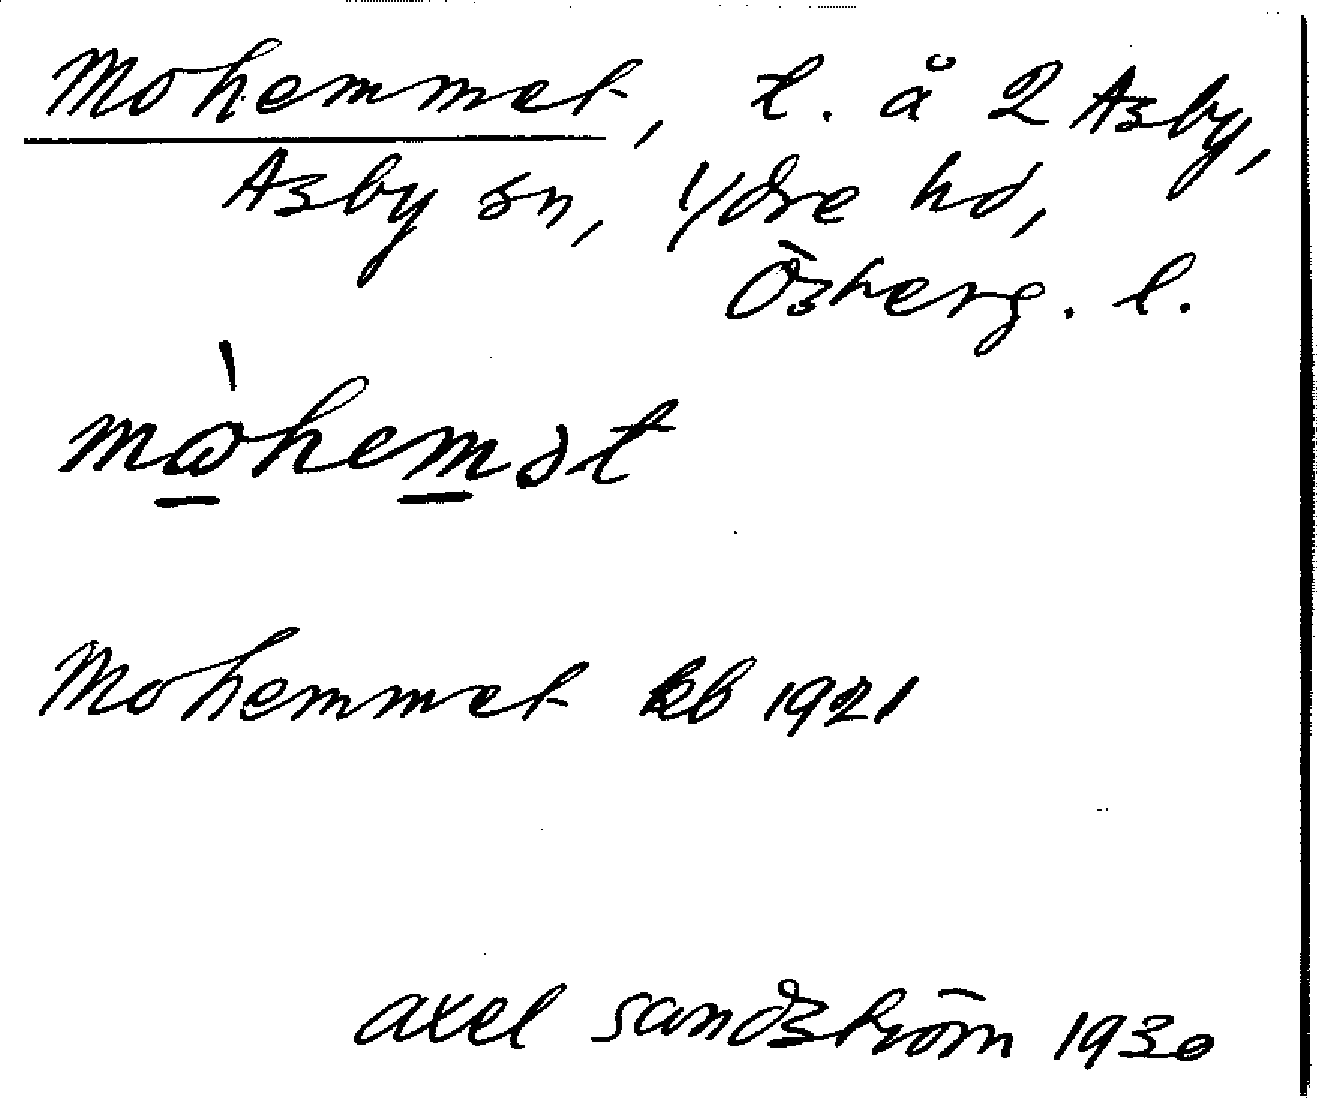 Mohemmet, t. å 2 Asby,
Asby sn, Ydre hd,
Österg. l.
mòhemət
Mohemmet kb 1921
axel sandström 1930